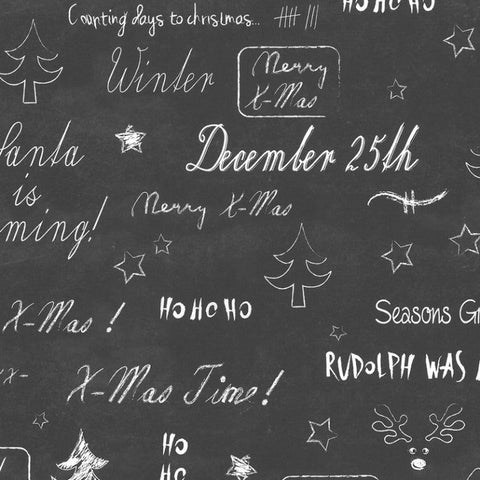 HO HO HO
Counting days to chrismas...
Winter
Merry
X-Mas
Santa
is
ming!
December 25th
Merry X-Mas
X-Mas !
HO HO HO
Seasons G
RUDOLPH WAS
X-Mas Time!
HO
HO